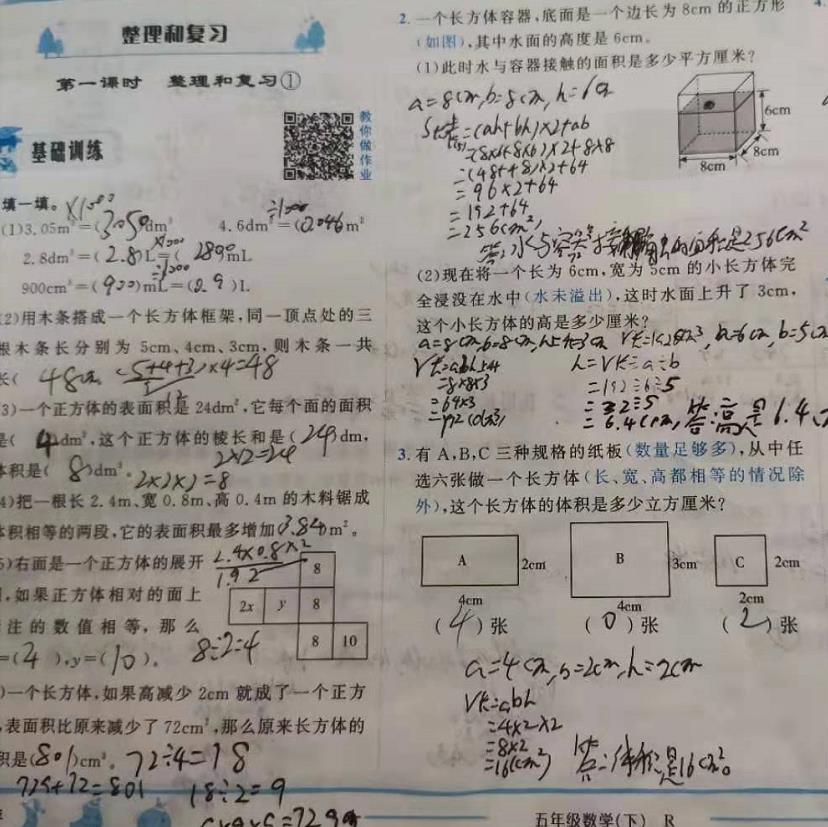 整理和复习
第一课时 整理和复习①
教你做作业
基础训练
填一填。×1000
(1)3.05m³=(3050)dm³ 4.6dm²=(0.046)m²
÷100
2.8dm³=(2.8)L=(2800)mL
×1000
÷1000
900cm³=(900)mL=(0.9)L
(2)用木条搭成一个长方体框架,同一顶点处的三
根木条长分别为 5cm、4cm、3cm,则木条一共
长( 48cm (5+4+3)×4=48
3)一个正方体的表面积是 24dm²,它每个面的面积
是( 4)dm²,这个正方体的棱长和是(24)dm,
2×12=24
体积是( 8)dm³。2×2×2=8
4)把一根长 2.4m、宽 0.8m、高 0.4m 的木料锯成
体积相等的两段,它的表面积最多增加(3.84)m²。
2.4×0.8×2
1.92
5)右面是一个正方体的展开
,如果正方体相对的面上
注的数值相等,那么
=(4),y=(10)。 8÷2=4
8
2x y 8
8 10
)一个长方体,如果高减少 2cm 就成了一个正方
,表面积比原来减少了 72cm²,那么原来长方体的
积是(801)cm³。72÷4=18
729+72=801 18÷2=9
=729
2.一个长方体容器,底面是一个边长为 8cm 的正方形
(如图),其中水面的高度是 6cm。
(1)此时水与容器接触的面积是多少平方厘米?
a=8cm,b=8cm,h=6cm
=(ah+bh)×2+ab
=(8×6+8×6)×2+8×8
=(48+48)×2+64
=96×2+64
=192+64
=256(cm²)
6cm
8cm
8cm
答:水与容器接触的面积是256cm²
(2)现在将一个长为 6cm,宽为 5cm 的小长方体完
全浸没在水中(水未溢出),这时水面上升了 3cm,
这个小长方体的高是多少厘米?
a=8cm,b=8cm,h=3cm V长=192cm³,a=6cm,b=5cm
V长=abh h=V长÷a÷b
=8×8×3 =192÷6÷5
=64×3 =32÷5
=192(cm³) =6.4(cm) 答:高是6.4
3.有 A,B,C 三种规格的纸板(数量足够多),从中任
选六张做一个长方体(长、宽、高都相等的情况除
外),这个长方体的体积是多少立方厘米?
A 2cm B 3cm C 2cm
4cm 4cm 2cm
(4)张 (0)张 (2)张
a=4cm,b=2cm,h=2cm
V长=abh
=4×2×2
=8×2
=16(cm³) 答:体积是16cm³。
五年级数学(下) R